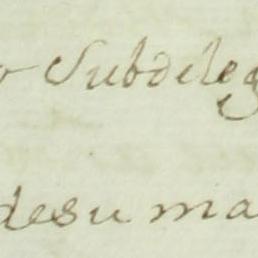 Subdeleg
desu ma